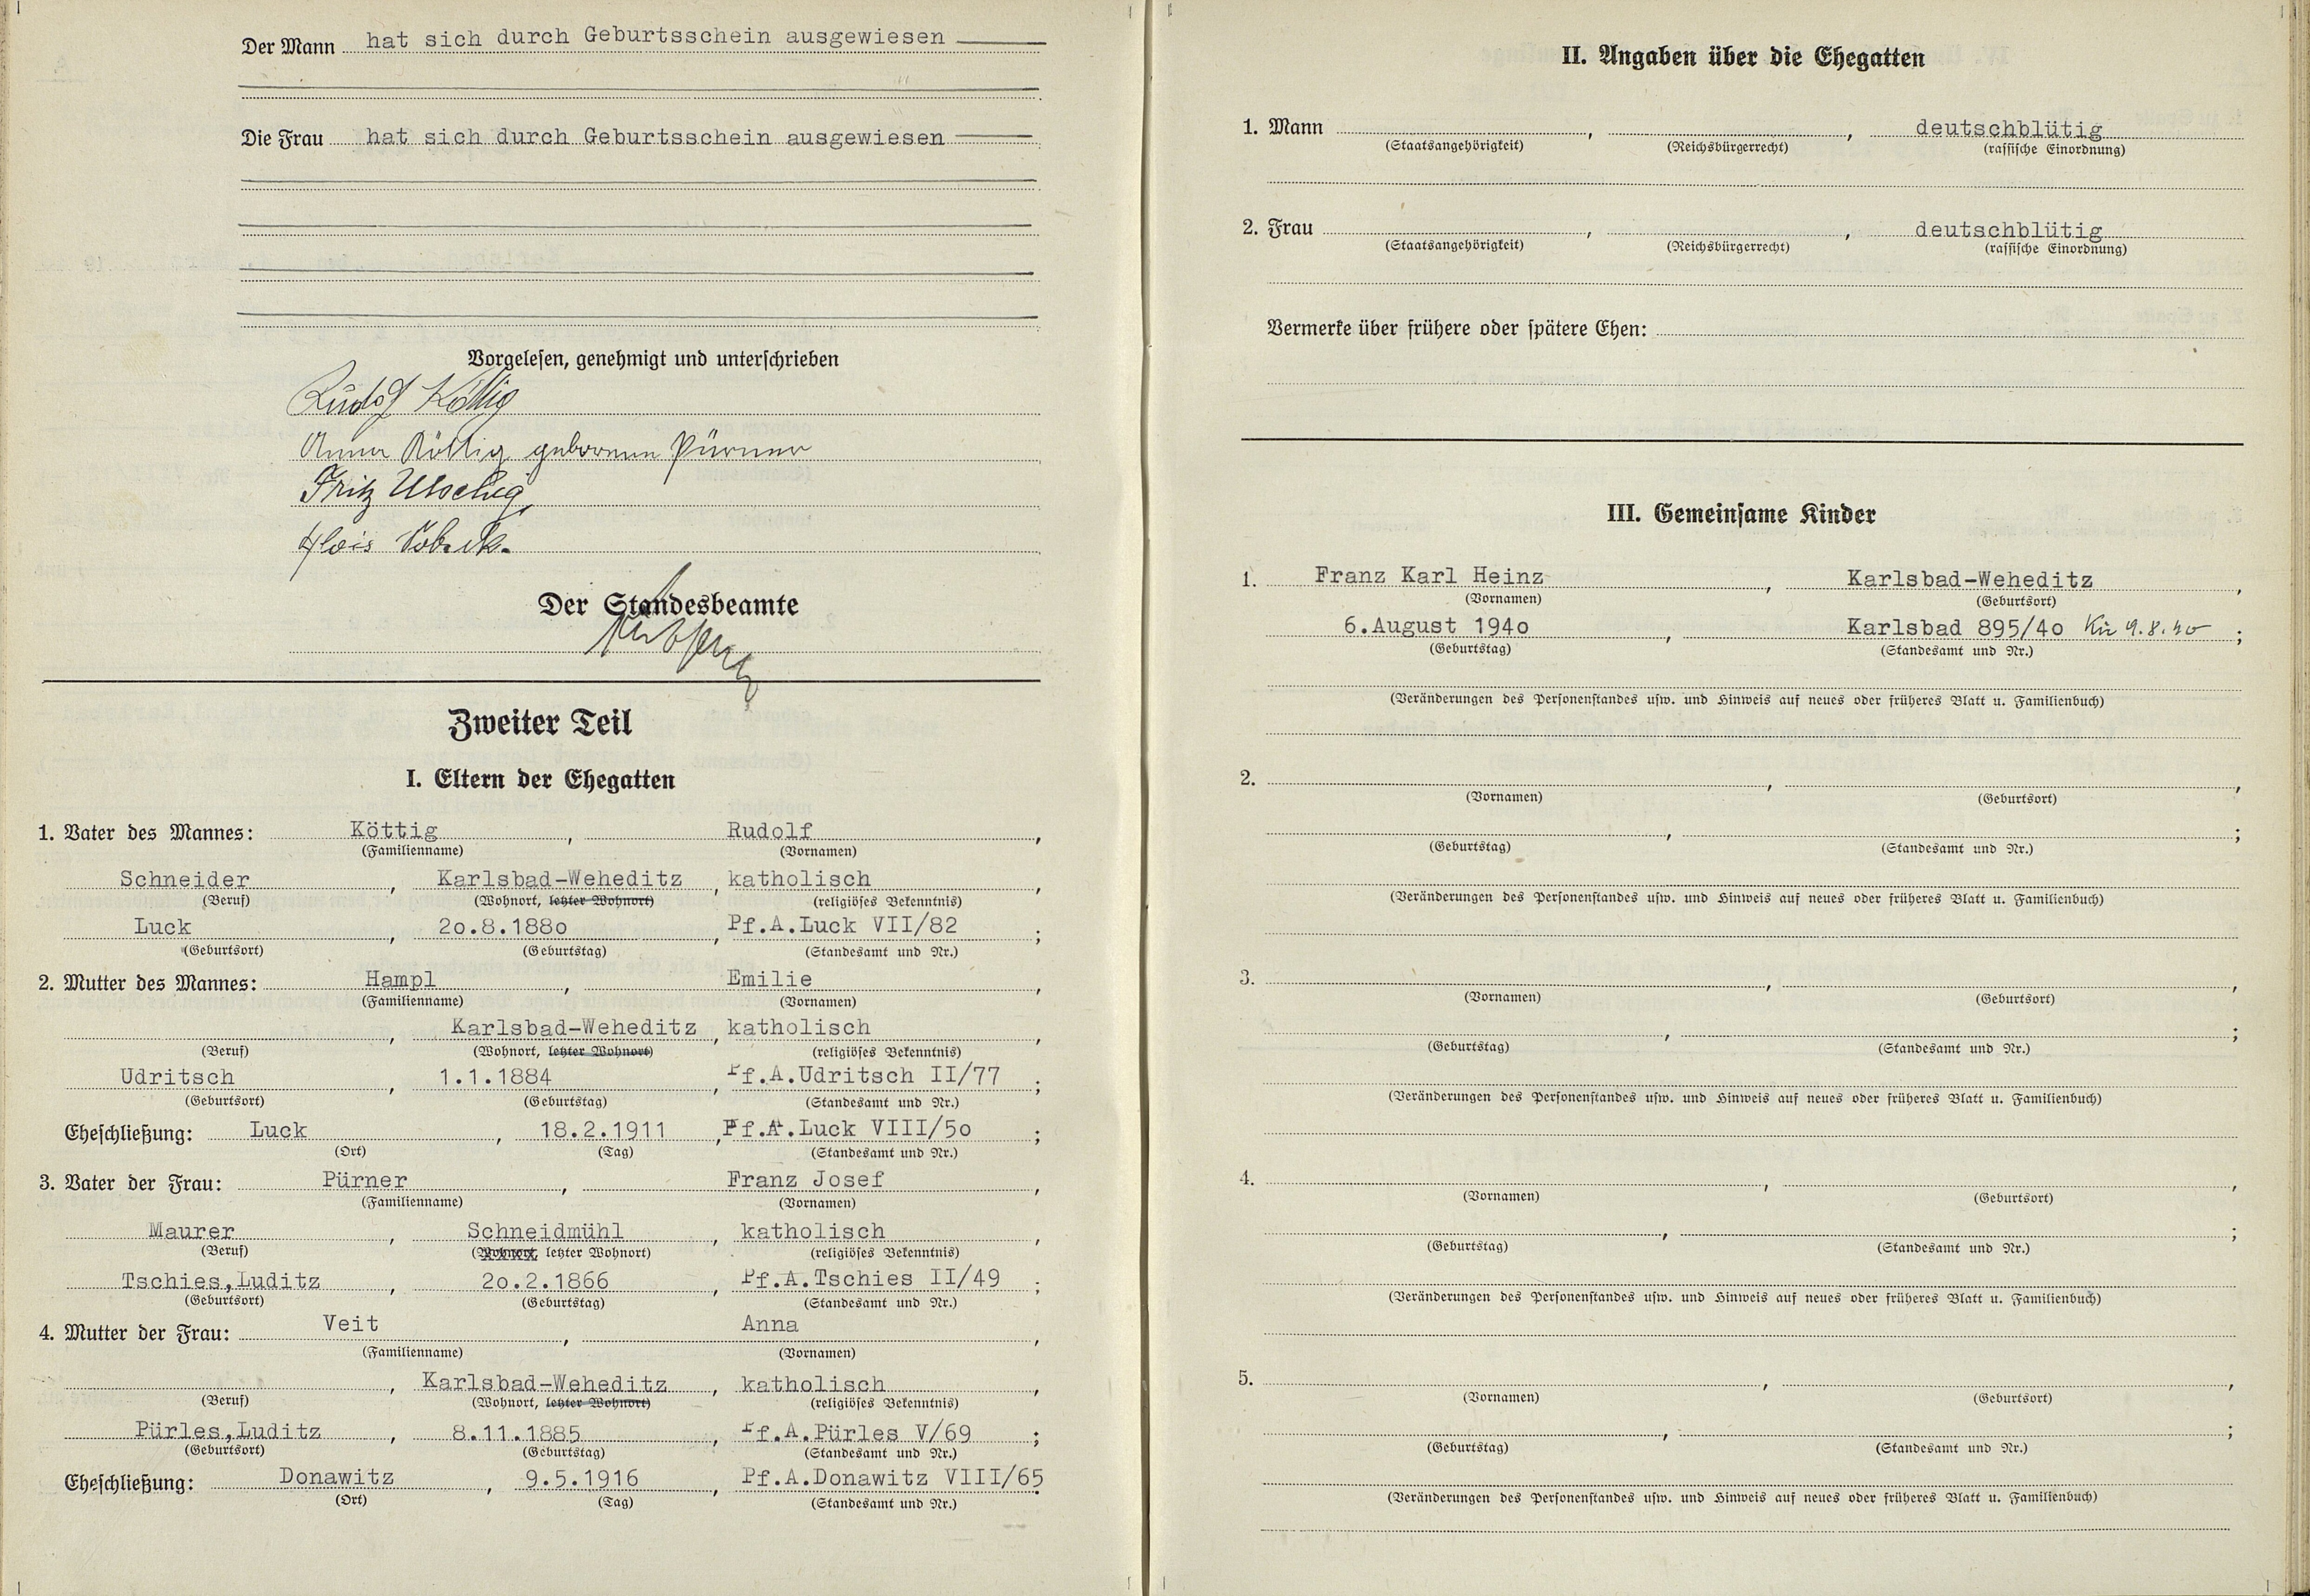 Der Mann hat sich durch Geburtsschein ausgewiesen
Die Frau hat sich durch Geburtsschein ausgewiesen
Vorgelesen, genehmigt und unterschrieben
Rudolf Köttig
Anna Köttig geborenen Pürner
Fritz
Alois
Der Standesbeamte
Zweiter Teil
I. Eltern der Ehegatten
1. Vater des Mannes: Köttig, Rudolf,
(Familienname) (Vornamen)
Schneider, Karlsbad-Weheditz, katholisch,
(Beruf) (Wohnort, letzter Wohnort) (religiöses Bekenntnis)
Luck, 2o.8.188o, Pf.A.Luck VII/82;
(Geburtsort) (Geburtstag) (Standesamt und Nr.)
2. Mutter des Mannes: Hampl, Emilie,
(Familienname) (Vornamen)
, Karlsbad-Weheditz, katholisch,
(Beruf) (Wohnort, letzter Wohnort) (religiöses Bekenntnis)
Udritsch, 1.1.1884, Pf.A.Udritsch II/77;
(Geburtsort) (Geburtstag) (Standesamt und Nr.)
Eheschließung: Luck, 18.2.1911, Pf.A.Luck VIII/5o;
(Ort) (Tag) (Standesamt und Nr.)
3. Vater der Frau: Pürner, Franz Josef,
(Familienname) (Vornamen)
Maurer, Schneidmühl, katholisch,
(Beruf) (Wohnort, letzter Wohnort) (religiöses Bekenntnis)
Tschies,Luditz, 2o.2.1866, Pf.A.Tschies II/49;
(Geburtsort) (Geburtstag) (Standesamt und Nr.)
4. Mutter der Frau: Veit, Anna,
(Familienname) (Vornamen)
, Karlsbad-Weheditz, katholisch,
(Beruf) (Wohnort, letzter Wohnort) (religiöses Bekenntnis)
Pürles,Luditz, 8.11.1885, Pf.A.Pürles V/69;
(Geburtsort) (Geburtstag) (Standesamt und Nr.)
Eheschließung: Donawitz, 9.5.1916, Pf.A.Donawitz VIII/65
(Ort) (Tag) (Standesamt und Nr.)
II. Angaben über die Ehegatten
1. Mann , , deutschblütig
(Staatsangehörigkeit) (Reichsbürgerrecht) (rassische Einordnung)
2. Frau , , deutschblütig
(Staatsangehörigkeit) (Reichsbürgerrecht) (rassische Einordnung)
Vermerke über frühere oder spätere Ehen:
III. Gemeinsame Kinder
1. Franz Karl Heinz, Karlsbad-Weheditz,
(Vornamen) (Geburtsort)
6.August 194o, Karlsbad 895/4o 9.8.40;
(Geburtstag) (Standesamt und Nr.)
(Veränderungen des Personenstandes usw. und Hinweis auf neues oder früheres Blatt u. Familienbuch)
2. , ,
(Vornamen) (Geburtsort)
, ;
(Geburtstag) (Standesamt und Nr.)
(Veränderungen des Personenstandes usw. und Hinweis auf neues oder früheres Blatt u. Familienbuch)
3. , ,
(Vornamen) (Geburtsort)
, ;
(Geburtstag) (Standesamt und Nr.)
(Veränderungen des Personenstandes usw. und Hinweis auf neues oder früheres Blatt u. Familienbuch)
4. , ,
(Vornamen) (Geburtsort)
, ;
(Geburtstag) (Standesamt und Nr.)
(Veränderungen des Personenstandes usw. und Hinweis auf neues oder früheres Blatt u. Familienbuch)
5. , ,
(Vornamen) (Geburtsort)
, ;
(Geburtstag) (Standesamt und Nr.)
(Veränderungen des Personenstandes usw. und Hinweis auf neues oder früheres Blatt u. Familienbuch)